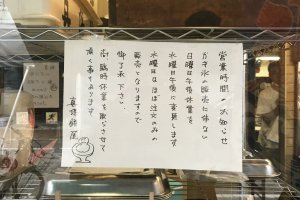 営業時間のお知らせ
かき氷の販売に伴ない
日曜日午後休業を
水曜日午後に変更します
水曜日はほぼ注文のみの
販売となりますので
御了承下さい
尚、臨時休業を取らさせて
頂く事もあります